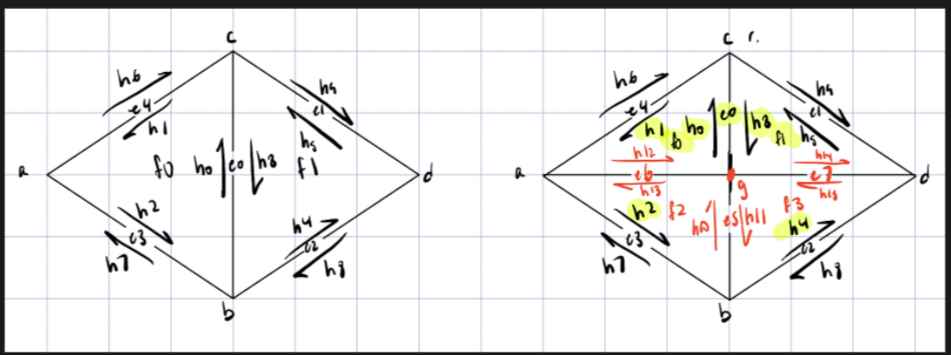 c
h6
e4
h1
h9
e1
h5
a
f0
h0
e0
h3
f1
d
h2
e3
h7
h4
e2
h8
b
c
h6
e4
h1
f0
h0
e0
h3
f1
h5
e1
h9
a
h12
e6
h13
g
h14
e7
h15
d
h2
f2
e3
h7
h10
e5
h11
f3
h4
e2
h8
b